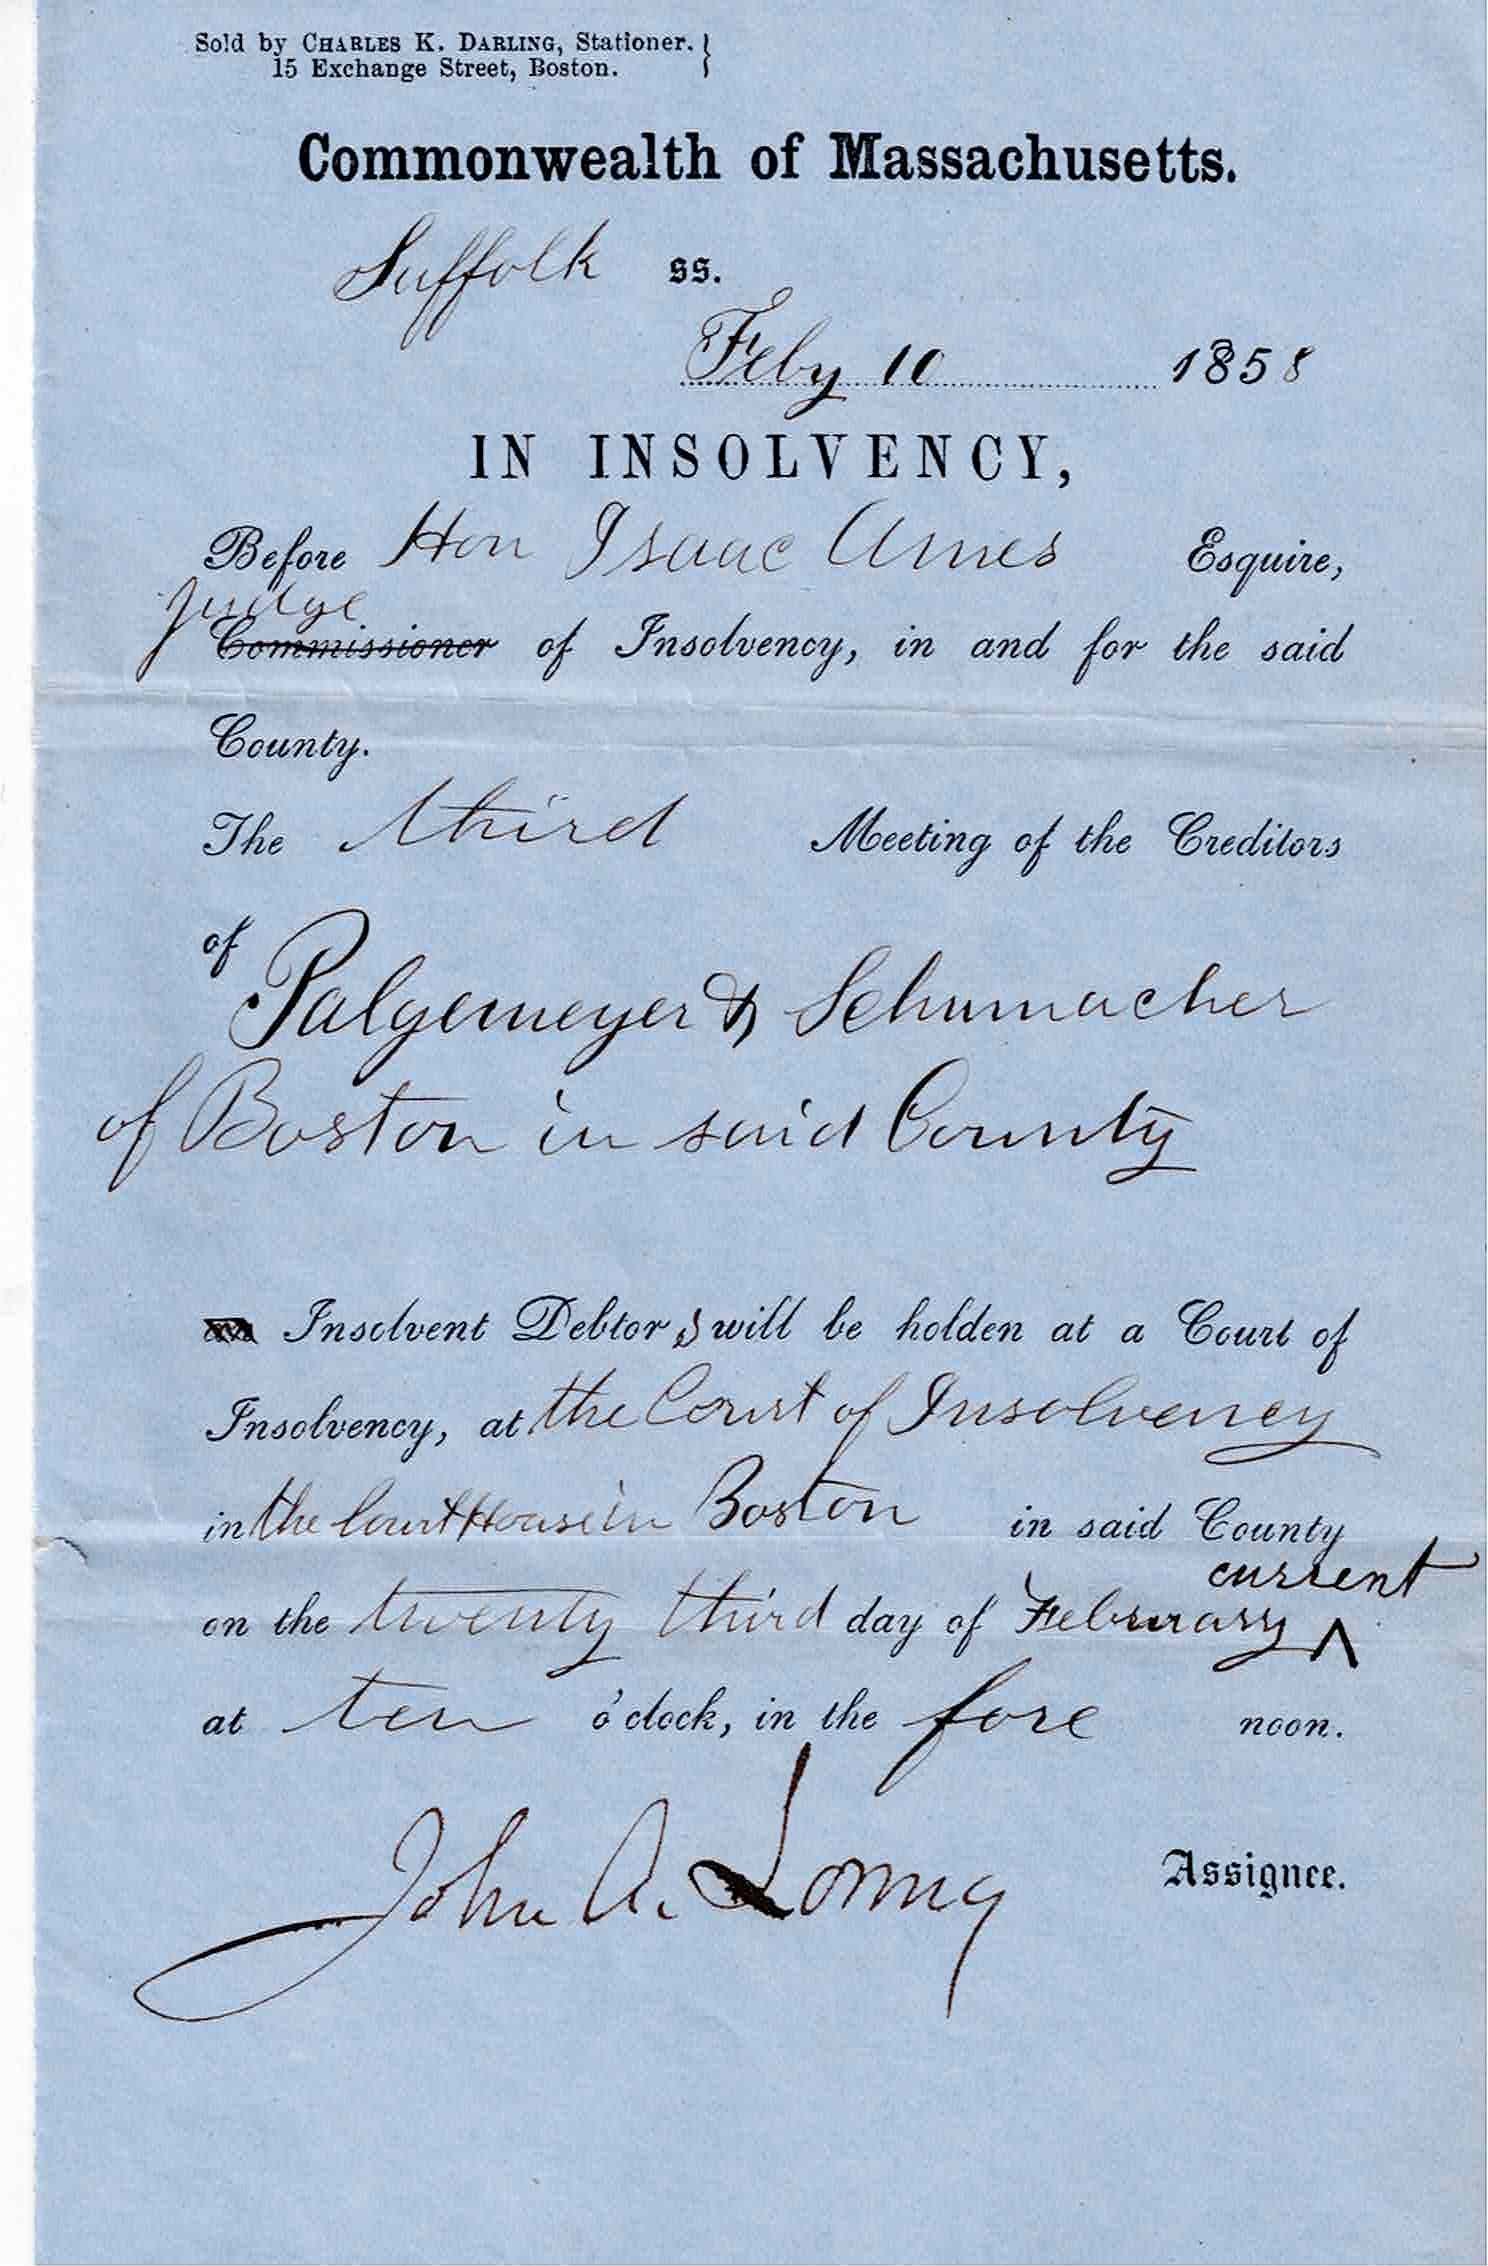 Sold by CHARLES K. DARLING, Stationer. }
15 Exchange Street, Boston.
Commonwealth of Massachusetts.
Suffolk ss.
Feby 10 1858
IN INSOLVENCY,
Before Hon Isaac Ames Esquire,
judge
Commissioner of Insolvency, in and for the said
County.
The third Meeting of the Creditors
of
Palgemeyer & Schumacher
of Boston in said County
Insolvent Debtors will be holden at a Court of
Insolvency, at the Court of Insolvency
in the Court House in Boston in said County
current
on the twenty third day of February ^
at ten o'clock, in the fore noon.
John A. Loring
Assignee.